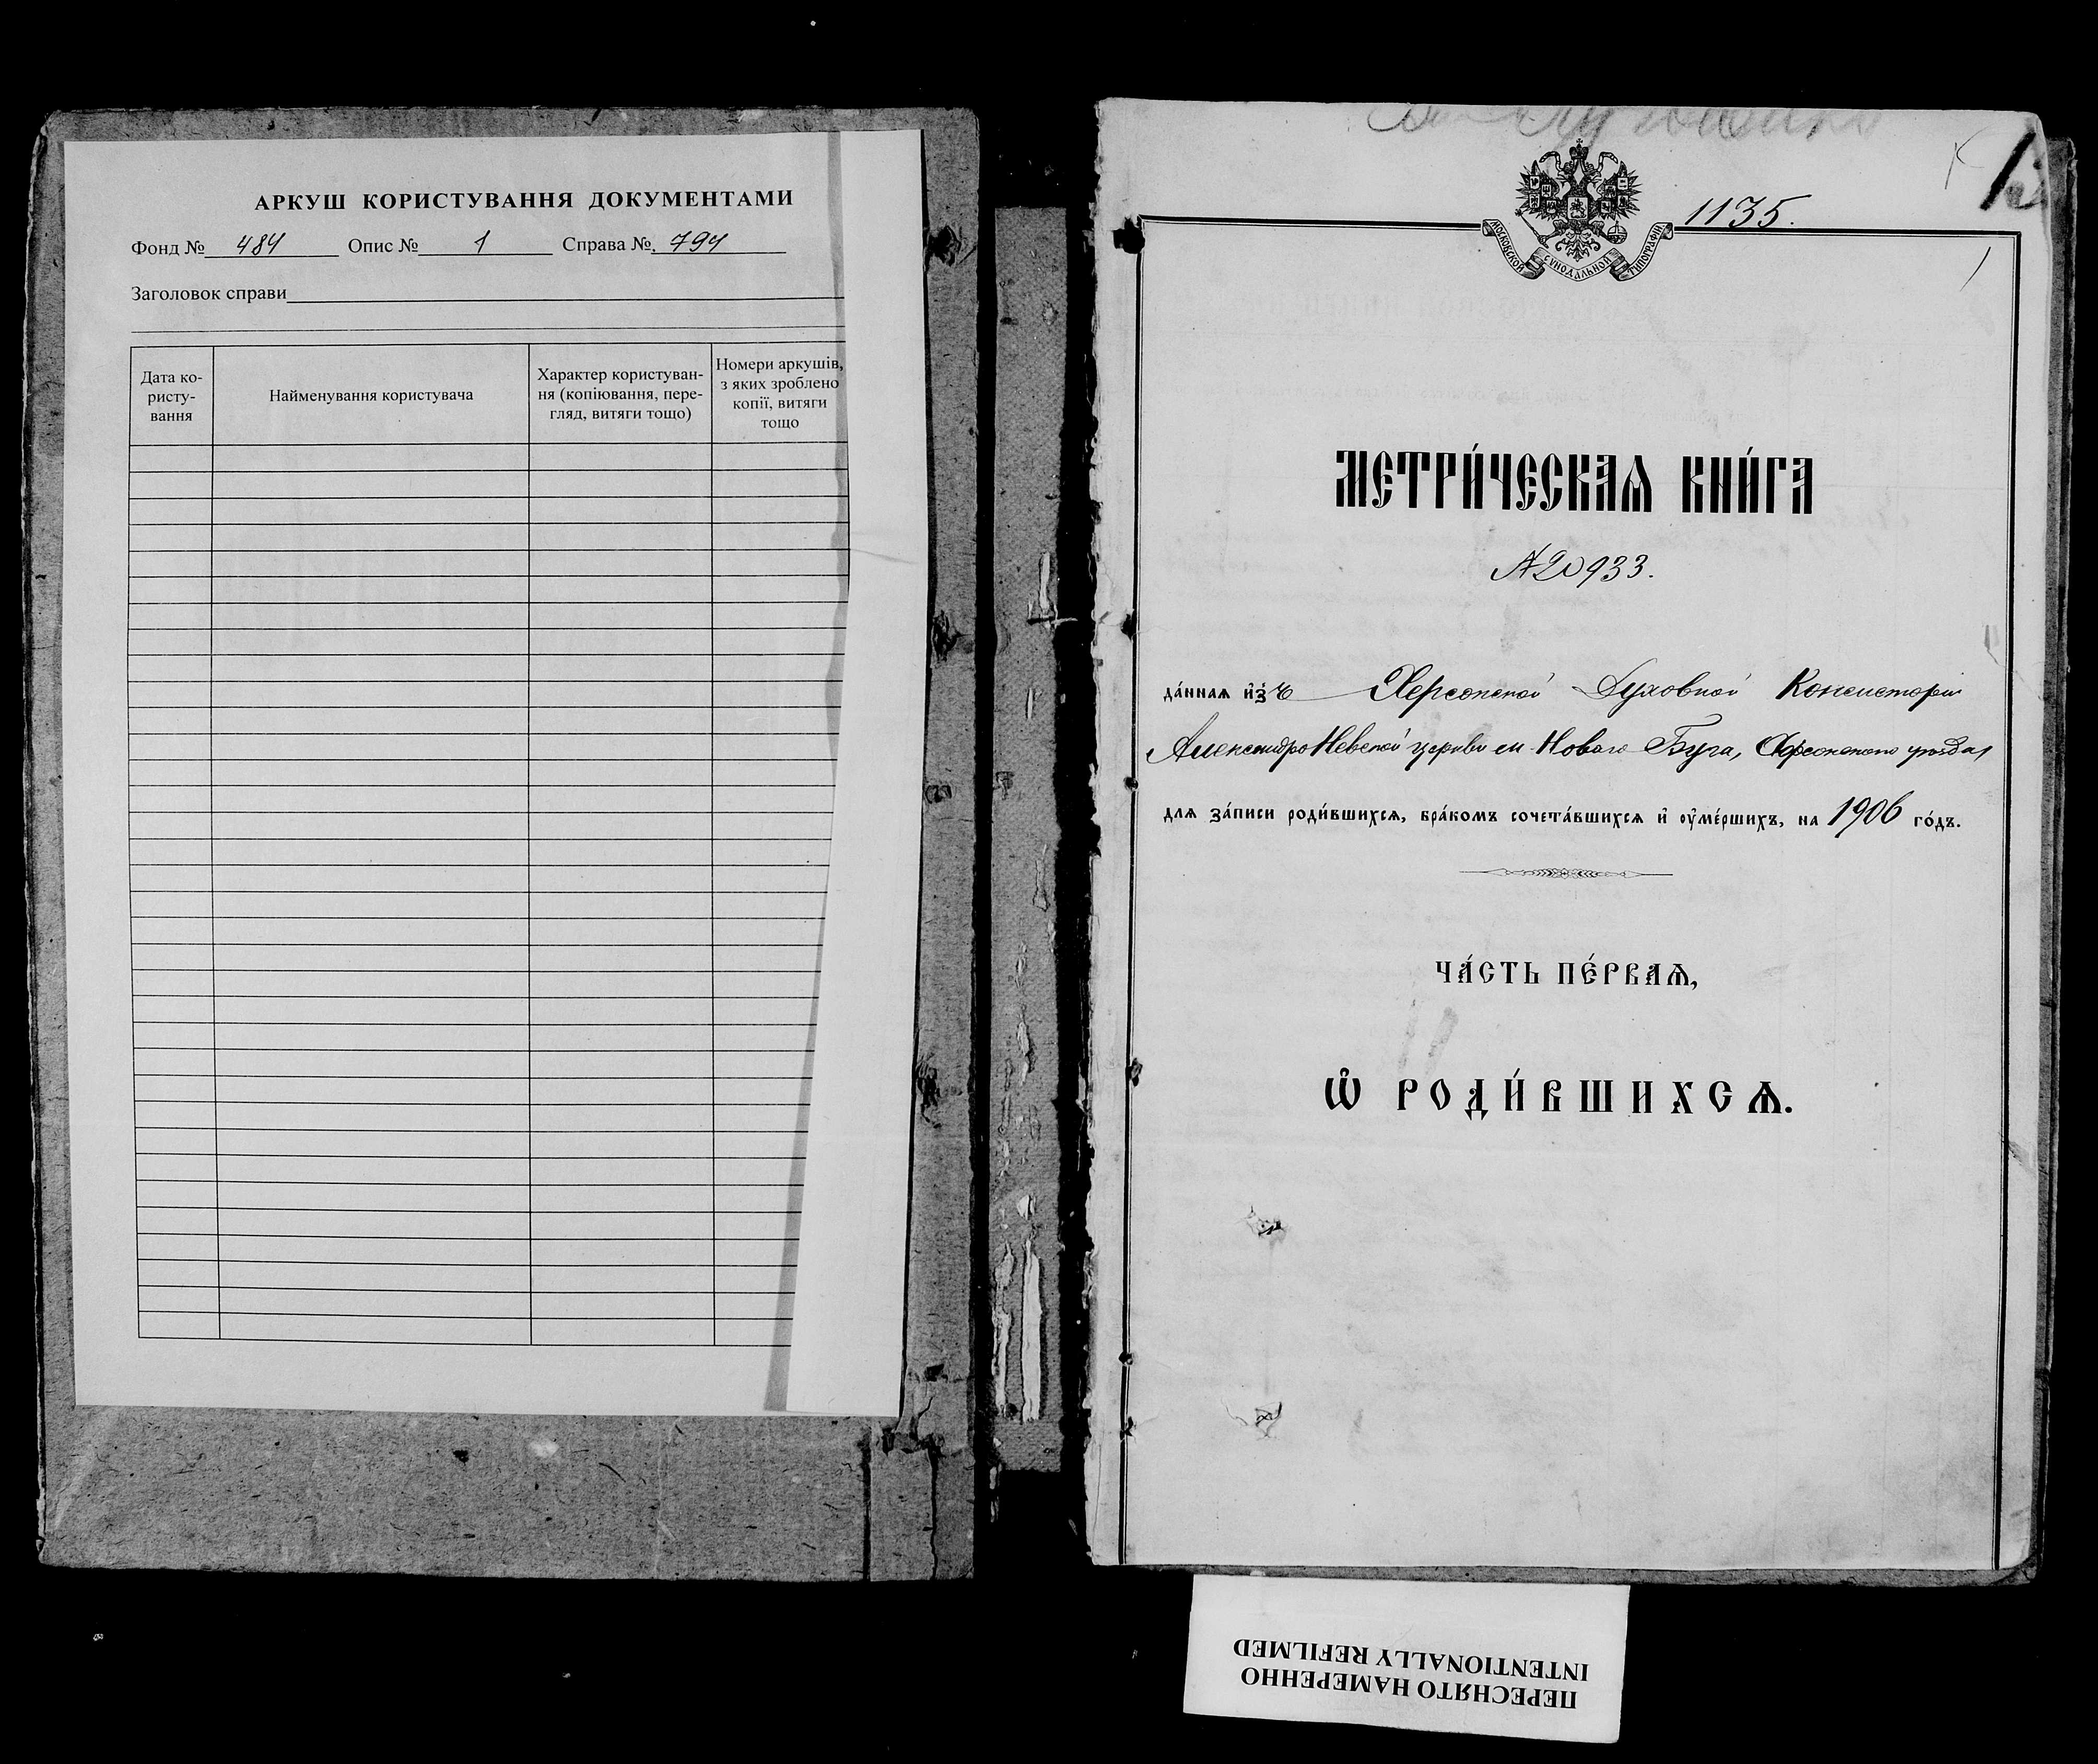 АРКУШ КОРИСТУВАННЯ ДОКУМЕНТАМИ
Фонд № 484 Опис № 1 Справа № 794
Заголовок справи
Дата ко-
ристу-
вання
Найменування користувача
Характер користуван-
ня (копіювання, пере-
гляд, витяги тощо)
Номери аркушів,
з яких зроблено
копії, витяги
тощо
1135.
МОСКОВСКОЙ СѴНОДАЛЬНОЙ ТИПОГРАФІИ
1
МЕТРИ́ЧЕСКАѦ КНИ́ГА
№ 933.
да́ннаѧ и҆зъ Херсонской Духовной Консисторіи
Александро Невской церкви м. Новаго Буга, Херсонскаго уѣзда,
длѧ за́писи роди́вшихсѧ, бра́комъ сочета́вшихсѧ и҆ ᲂу҆ме́ршихъ, на 1906 го́дъ.
ЧА́СТЬ ПЕ́РВАѦ,
Ѡ҆ РОДИ́ВШИХСѦ.
ПЕРЕСНЯТО НАМЕРЕННО
INTENTIONALLY REFILMED